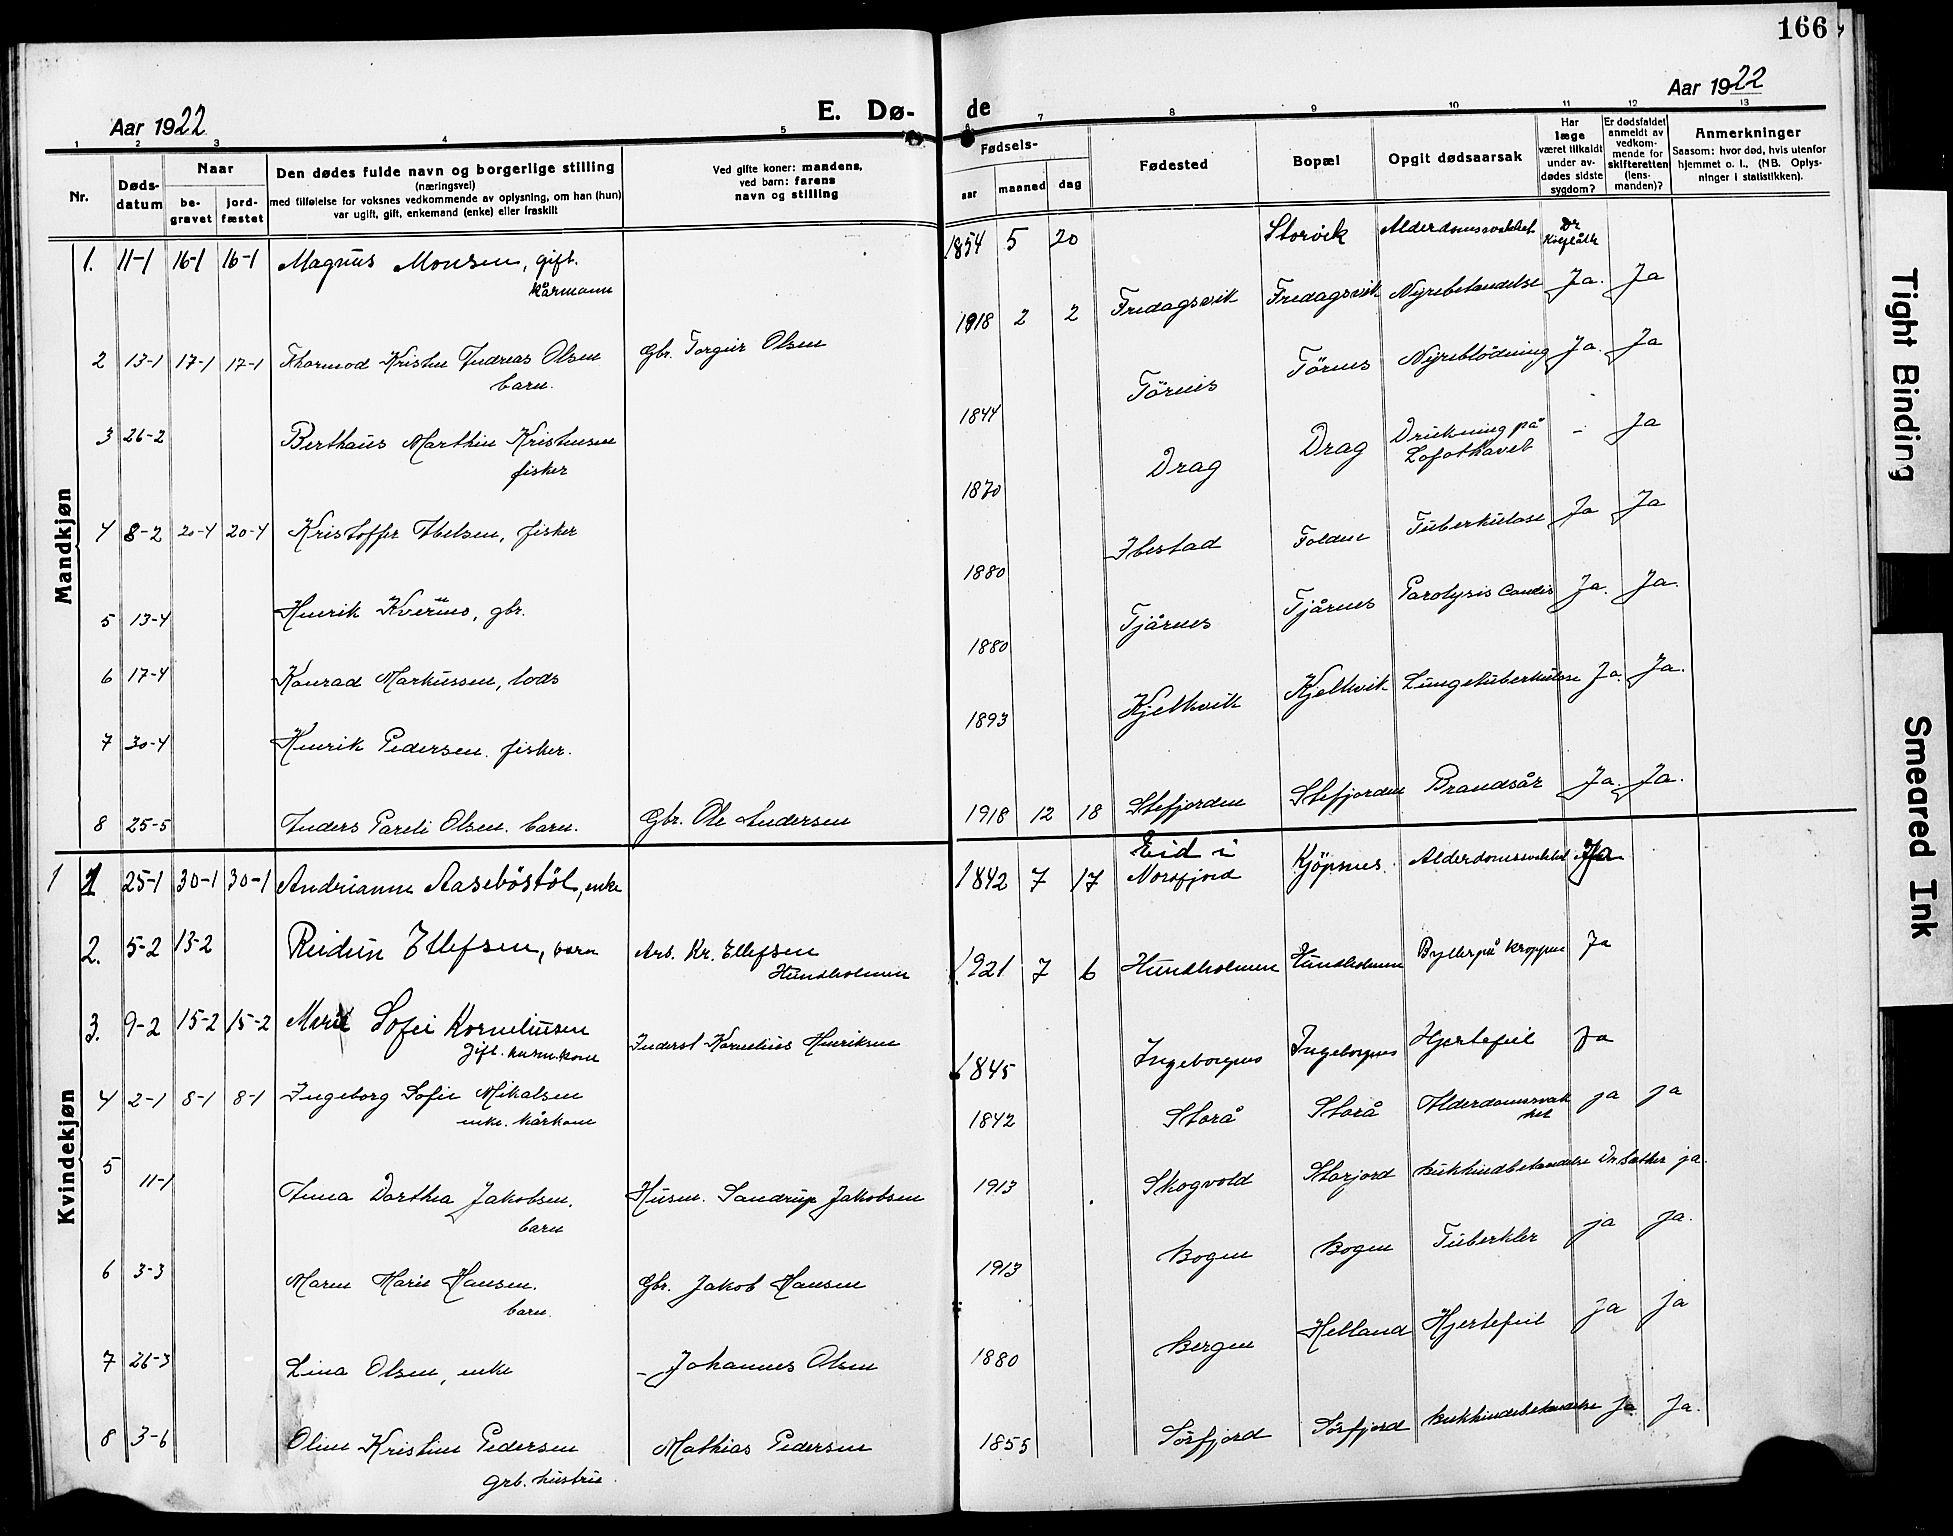 166
Aar 1922
E. Dø-
de
Aar 1922
1 2 3 4 5
7 8 9 10 11 12 13
Nr.
Døds-
datum
Naar
be-
gravet
jord-
fæstet
Den dødes fulde navn og borgerlige stilling
(næringsvei)
med tilføielse for voksnes vedkommende av oplysning, om han (hun)
var ugift, gift, enkemand (enke) eller fraskilt
Ved gifte koner: mandens,
ved barn: farens
navn og stilling
Fødsels-
aar maaned dag
Fødested
Bopæl
Opgit dødsaarsak
Har
læge
været tilkaldt
under av-
dødes sidste
sygdom?
Er dødsfaldet
anmeldt av
vedkom-
mende for
skifteretten
(lens-
manden)?
Anmerkninger
Saasom: hvor død, hvis utenfor
hjemmet o. l., (NB. Oplys-
ninger i statistikken).
Mandkjøn
1. 11-1 16-1 16-1 Magnus Monsen, gift. 1854 5 20 Storvik Alderdomssvakhet Dr
kårmann
2 13-1 17-1 17-1 Thormod Kristen Andreas Olsen Gbr. Torgeir Olsen 1918 2 2 Fredagsvik Fredagsvik Nyrebetændelse Ja. Ja
barn.
3 26-2 Berthaus Marthin Kristensen 1844 Törnes Törnes Nyreblödning Ja. Ja
fisker
4 8-2 20-4 20-4 Kristoffer Abelsen, fisker 1870 Drag Drag Drukning på - Ja
Lofothavet
5 13-4 Henrik Kverius, gbr. 1880 Ibestad Folden Tuberkulose Ja Ja
6 17-4 Konrad Markussen, lods 1880 Tjårnes Tjårnes Paralysis Cordis Ja. Ja.
7 30-4 Henrik Pedersen. fisker. 1893 Kjelkvik Kjelkvik Lungetuberkulose Ja. Ja.
8 25-5 Anders Pareli Olsen. barn. Gbr. Ole Andersen 1918 12 18 Stefjorden Stefjorden Brandsår Ja. Ja.
Kvindekjøn
1 1 25-1 30-1 30-1 Andrianne Aasebøstøl, enke 1842 7 17 Eid i Kjöpsnes. Alderdomssvakhet Ja
Norsfjord
2. 5-2 13-2 Reidun Ellefsen, barn Arb. Kr. Ellefsen 1921 7 6 Hundholmen Hundholmen Byller på kroppen Ja
Hundholmen
3. 9-2 15-2 15-2 Marit Sofei Korneliusen Inderst Kornelius Henriksen 1845 Ingeborgnes Ingeborgnes Hjertefeil Ja
gift. husm.kone
4 2-1 8-1 8-1 Ingeborg Sofie Mikalsen 1842 Storå Storå Alderdomssvak ja ja
enke. kårkone het
5 11-1 Anna Dorthea Jakobsen. Husm. Sandrup Jakobsen 1913 Skogvold Storjord Bukhindbetændelse Dr. Sæther ja.
barn
6 3-3 Maren Marie Hansen. Gbr. Jakob Hansen 1913 Bogen Bogen Tuberkler ja ja.
barn.
7 26-3 Lina Olsen, enke - Johannes Olsen 1880 Bergen Helland Hjertefeil Ja Ja
8 3-6 Oline Kristine Pedersen Mathias Pedersen 1855 Sörfjord Sörfjord Bukhindebetændelse Ja Ja.
grb. hustru.
Tight Binding
Smeared Ink